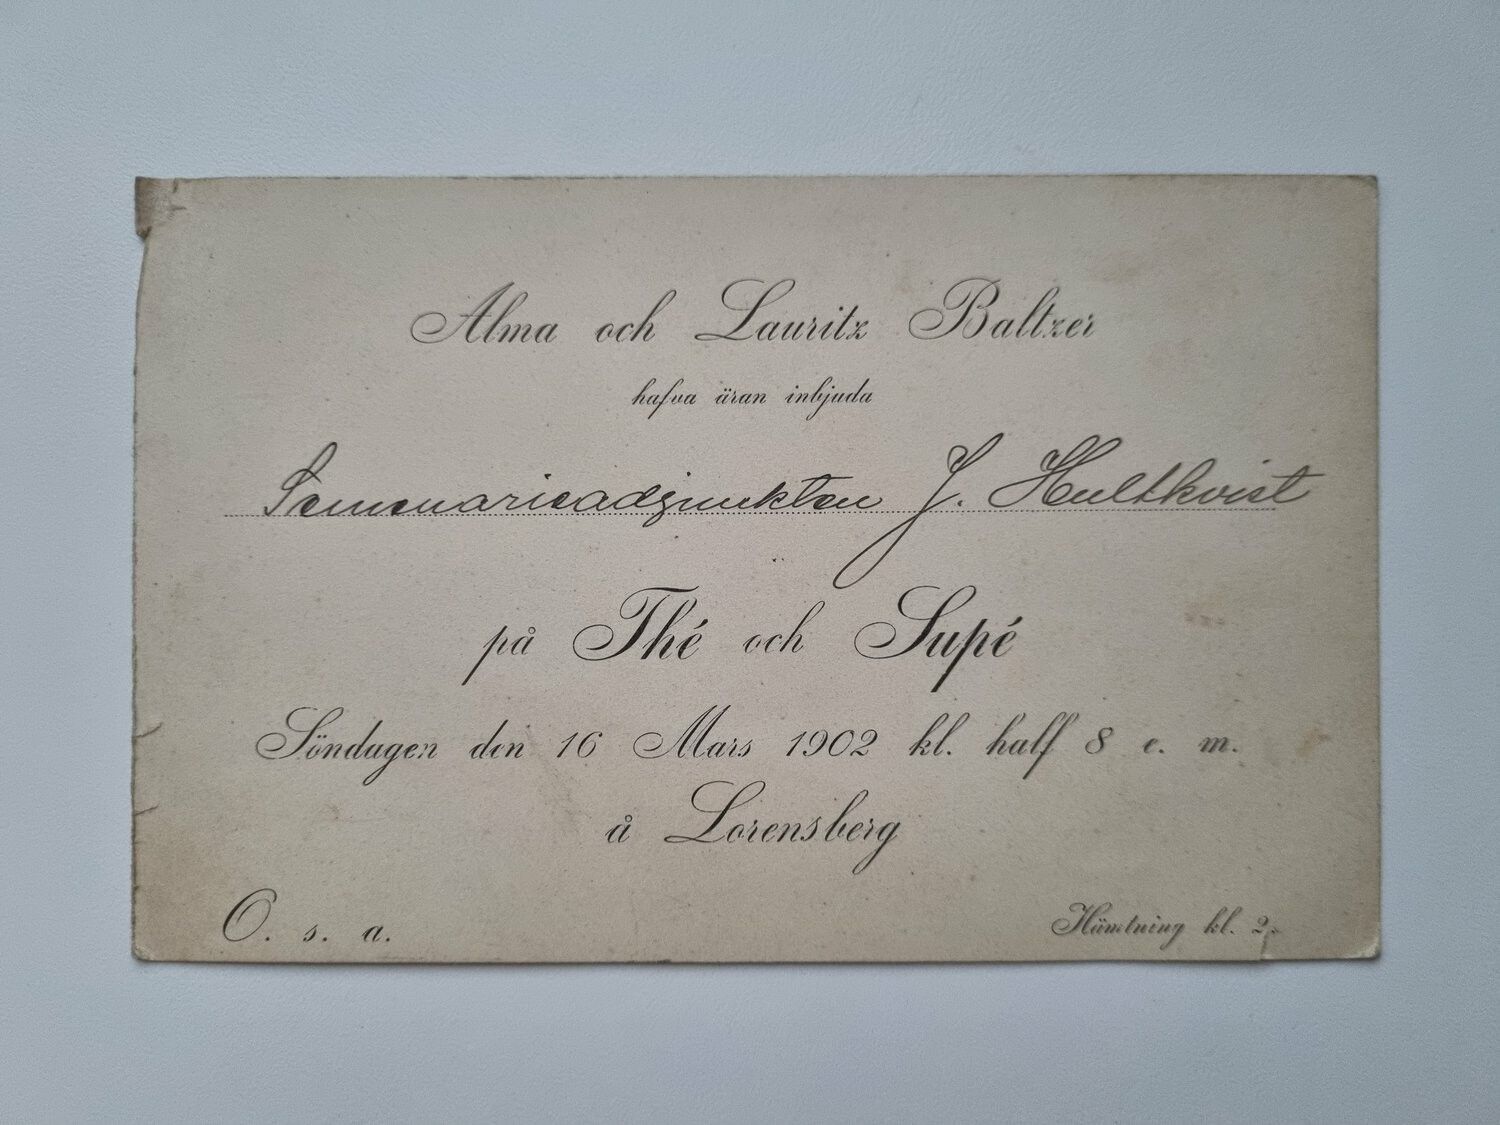 Alma och Lauritz Baltzer
hafva äran inbjuda
Seminarieadjunkten J. Hultkvist
på Thé och Supé
Söndagen den 16 Mars 1902 kl. half 8 e. m.
å Lorensberg
O. s. a.
Hämtning kl. 2.